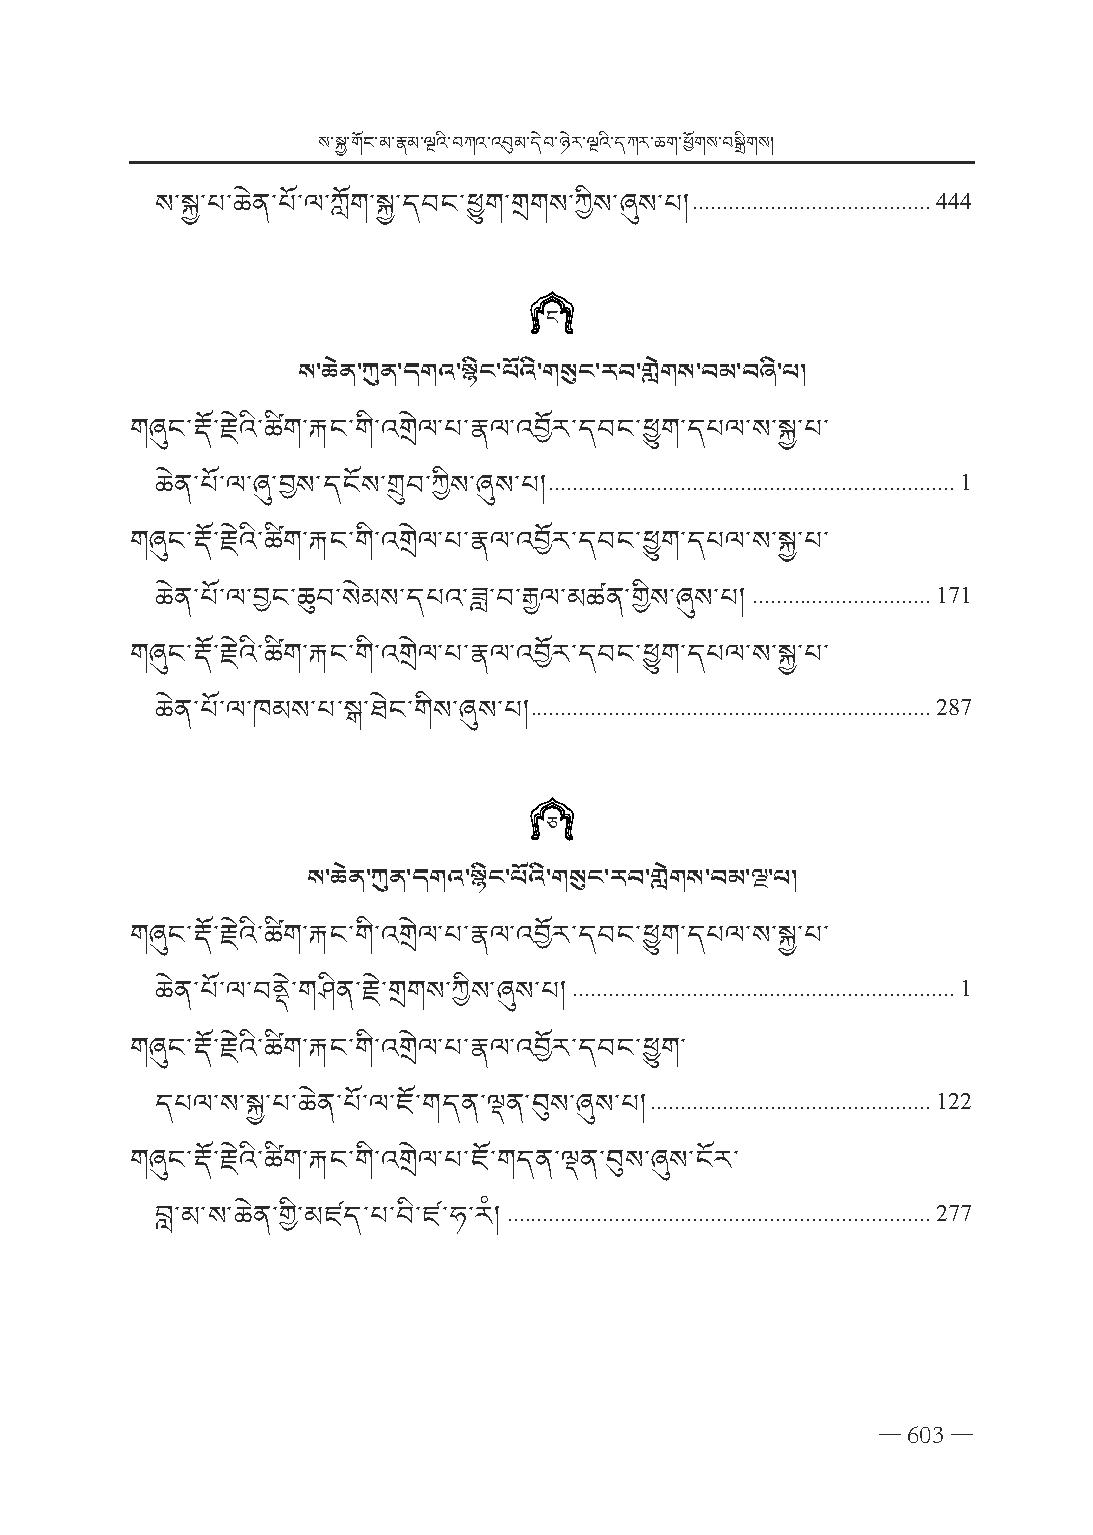 ས་སྐྱ་གོང་མ་རྣམ་ལྔའི་བཀའ་འབུམ་དེབ་ཉེར་ལྔའི་དཀར་ཆག་ཕྱོགས་བསྒྲིགས།
ས་སྐྱ་པ་ཆེན་པོ་ལ་ཀློག་སྐྱ་དབང་ཕྱུག་གྲགས་ཀྱིས་ཞུས་པ། ........................................ 444
ང
ས་ཆེན་ཀུན་དགའ་སྙིང་པོའི་གསུང་རབ་གླེགས་བམ་བཞི་པ།
གཞུང་རྡོ་རྗེའི་ཚིག་རྐང་གི་འགྲེལ་པ་རྣལ་འབྱོར་དབང་ཕྱུག་དཔལ་ས་སྐྱ་པ་
ཆེན་པོ་ལ་ཞུ་བྱས་དངོས་གྲུབ་ཀྱིས་ཞུས་པ། .................................................................... 1
གཞུང་རྡོ་རྗེའི་ཚིག་རྐང་གི་འགྲེལ་པ་རྣལ་འབྱོར་དབང་ཕྱུག་དཔལ་ས་སྐྱ་པ་
ཆེན་པོ་ལ་བྱང་ཆུབ་སེམས་དཔའ་ཟླ་བ་རྒྱལ་མཚན་གྱིས་ཞུས་པ། .............................. 171
གཞུང་རྡོ་རྗེའི་ཚིག་རྐང་གི་འགྲེལ་པ་རྣལ་འབྱོར་དབང་ཕྱུག་དཔལ་ས་སྐྱ་པ་
ཆེན་པོ་ལ་ཁམས་པ་སྒ་ཐེང་གིས་ཞུས་པ། ................................................................... 287
ཅ
ས་ཆེན་ཀུན་དགའ་སྙིང་པོའི་གསུང་རབ་གླེགས་བམ་ལྔ་པ།
གཞུང་རྡོ་རྗེའི་ཚིག་རྐང་གི་འགྲེལ་པ་རྣལ་འབྱོར་དབང་ཕྱུག་དཔལ་ས་སྐྱ་པ་
ཆེན་པོ་ལ་བནྡེ་གཤིན་རྗེ་གྲགས་ཀྱིས་ཞུས་པ། ................................................................ 1
གཞུང་རྡོ་རྗེའི་ཚིག་རྐང་གི་འགྲེལ་པ་རྣལ་འབྱོར་དབང་ཕྱུག་
དཔལ་ས་སྐྱ་པ་ཆེན་པོ་ལ་ཇོ་གདན་ལྡན་བུས་ཞུས་པ། ............................................... 122
གཞུང་རྡོ་རྗེའི་ཚིག་རྐང་གི་འགྲེལ་པ་ཇོ་གདན་ལྡན་བུས་ཞུས་ངོར་
བླ་མ་ས་ཆེན་གྱི་མཛད་པ་བི་ཛ་ཧ་རཾ། ....................................................................... 277
— 603 —